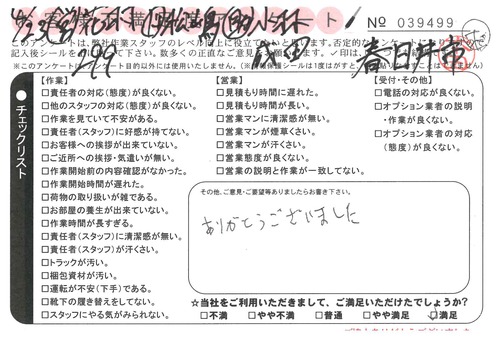 No 039499
このアンケートは、弊社作業スタッフのレベル向上に役立てていきたいと思います。否定的な
記入後シールを
※このアンケートは 以外には使用いたしません。
春日井市
チェックリスト
【作業】
□責任者の対応(態度)が良くない。
□他のスタッフの対応(態度)が良くない。
□作業を見ていて不安がある。
□責任者(スタッフ)に好感が持てない。
□お客様への挨拶が出来ていない。
□ご近所への挨拶・気遣いが無い。
□作業開始前の内容確認がなかった。
□作業開始時間が遅れた。
□荷物の取り扱いが雑である。
□お部屋の養生が出来ていない。
□作業時間が長すぎる。
□責任者(スタッフ)に清潔感が無い。
□責任者(スタッフ)が汗くさい。
□トラックが汚い。
□梱包資材が汚い。
□運転が不安(下手)である。
□靴下の履き替えをしてない。
□スタッフにやる気がみられない。
【営業】
□見積もり時間に遅れた。
□見積もり時間が長い。
□営業マンに清潔感が無い。
□営業マンが煙草くさい。
□営業マンが汗くさい。
□営業態度が良くない。
□営業の説明と作業が一致してない。
【受付・その他】
□電話の対応が良くない。
□オプション業者の説明
・作業が良くない。
□オプション業者の対応
(態度)が良くない。
その他、ご意見・ご要望等ありましたらお書き下さい。
ありがとうございました
☆当社をご利用いただきまして、ご満足いただけたでしょうか?
□不満 □やや不満 □普通 □やや満足 ☑満足